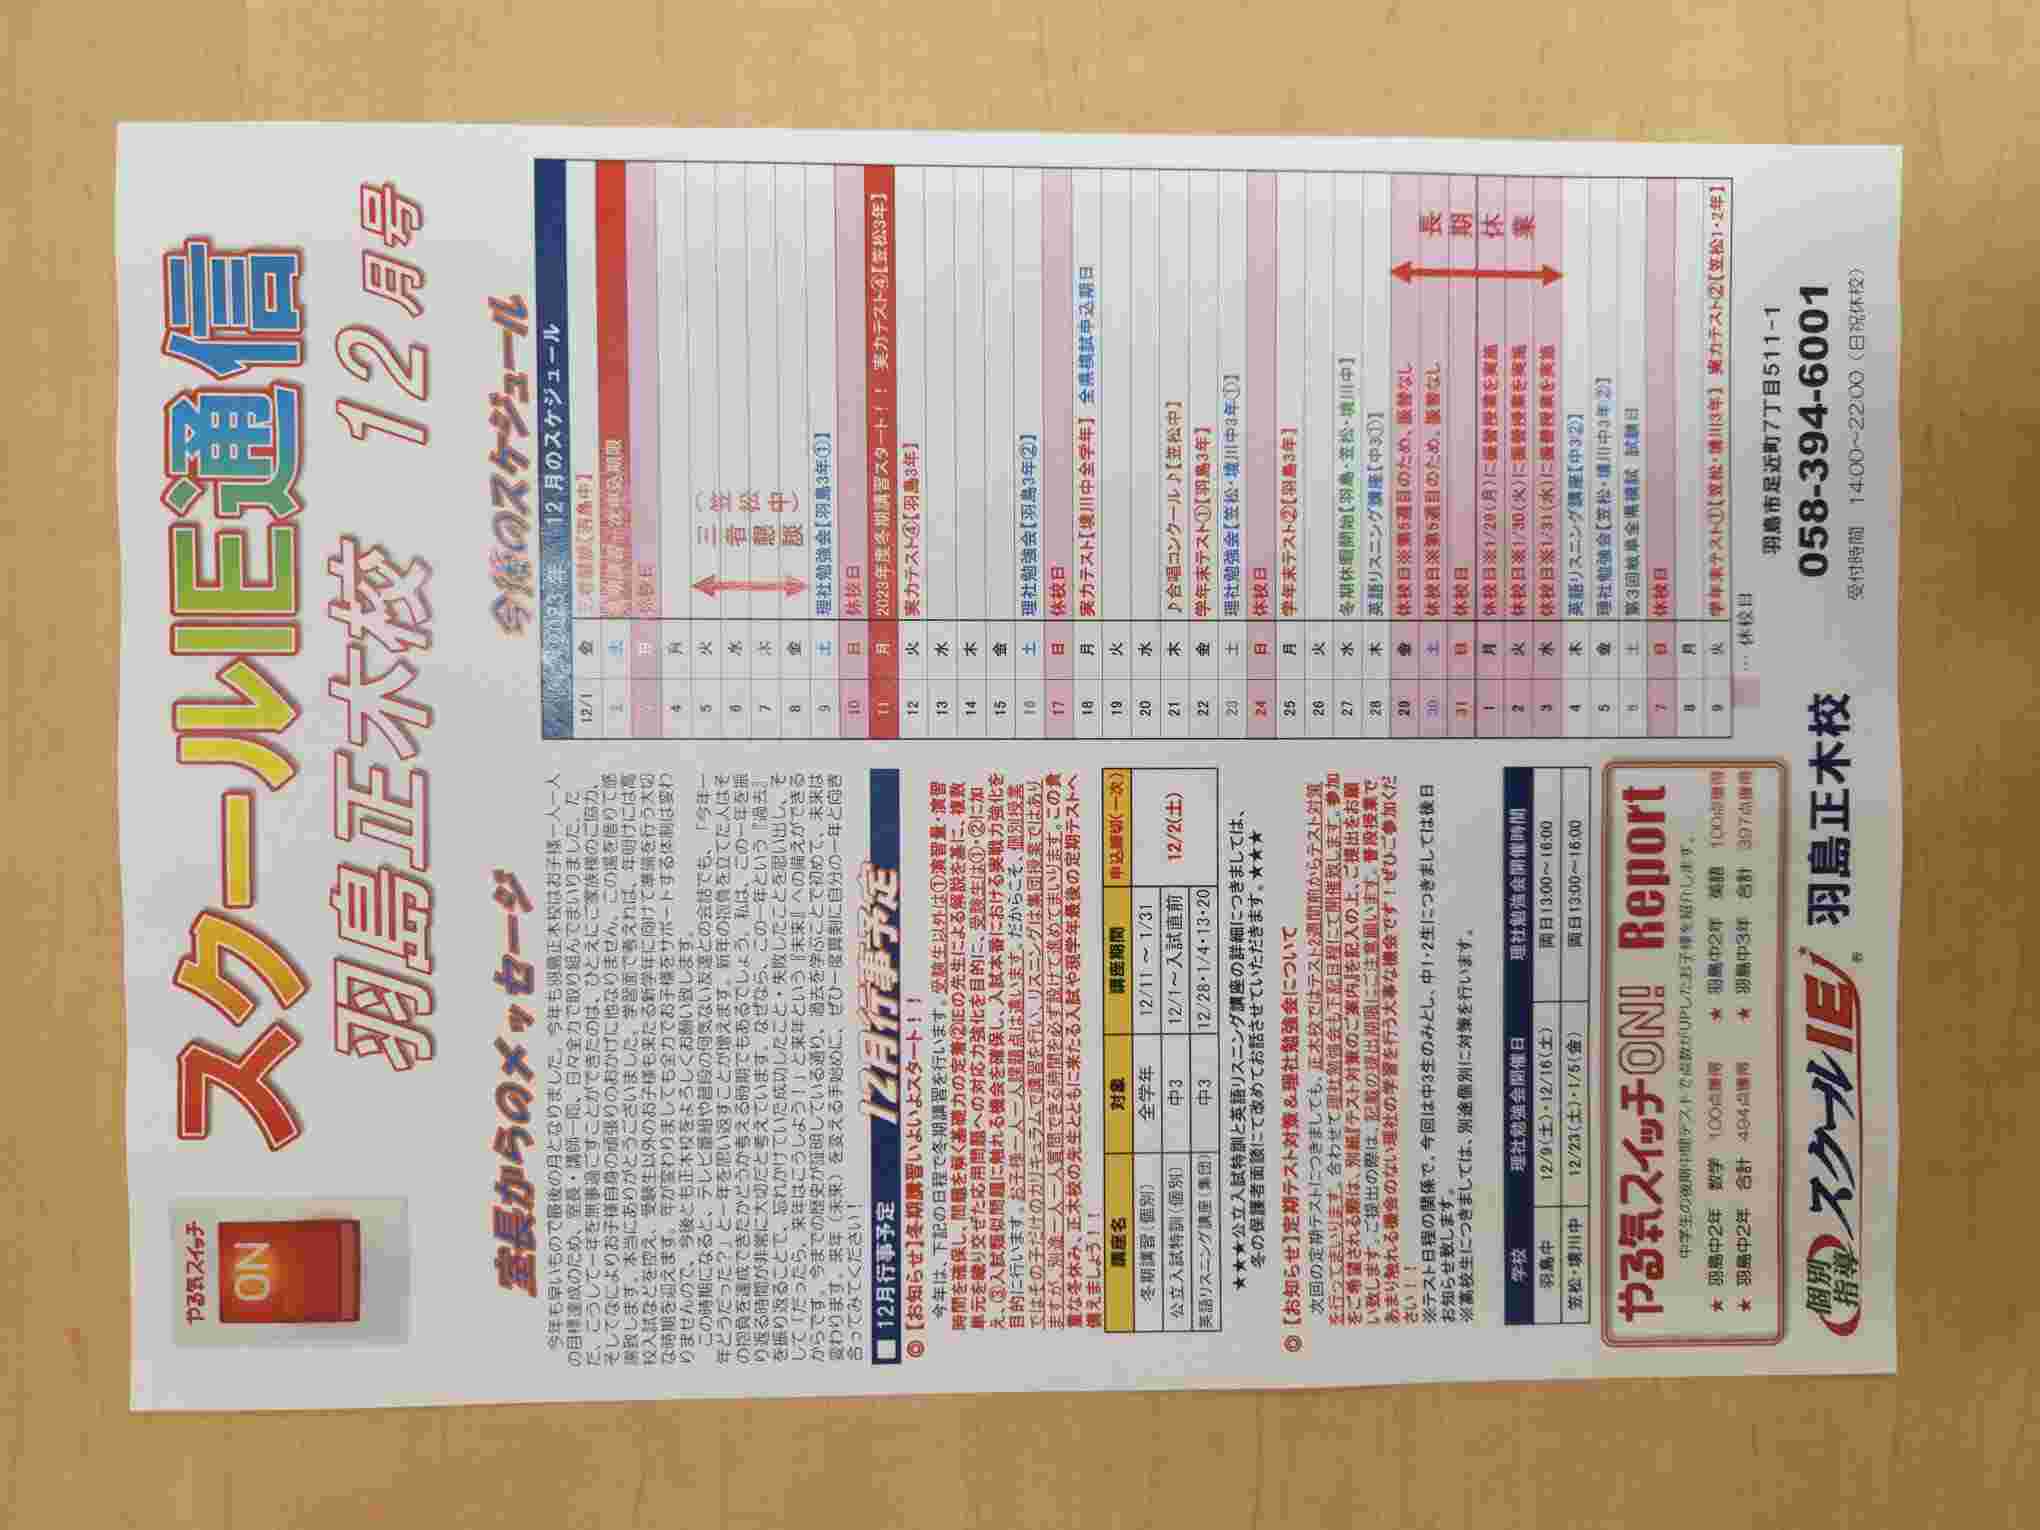 やる気スイッチ
ON
スクールIE通信
羽島正木校 12月号
室長からのメッセージ
今年も早いもので最後の月となりました。今年も羽島正木校はお子様一人一人
の目標達成のため、室長・講師一同、日々全力で取り組んでまいりました。た
だ、こうして一年を無事過ごすことができたのは、ひとえにご家族様のご協力、
そしてなによりお子様自身の頑張りのおかげに他なりません。この場を借りて感
謝致します。本当にありがとうございました。学習面で考えれば、年明けには高
校入試などを控え、受験生以外のお子様も来たる新学年に向けて準備を行う大切
な時期を迎えます。年が変わりましても全力でお子様をサポートする体制は変わ
りませんので、今後とも正木校をよろしくお願い致します。
この時期になると、テレビ番組や普段の何気ない友達との会話でも、「今年一
年どうだった？」と一年を思い返すことが増えます。新年の抱負を立てた人はそ
の抱負を達成できたかどうか考える時期でもあるでしょう。私は、この一年を振
り返る時間が非常に大切だと考えています。なぜなら、この一年という『過去』
を振り返ることで、忘れかけていた成功したこと・失敗したことを思い出し、そ
して「だったら、来年はこうしよう！」と来年という『未来』への備えができる
からです。今までの歴史が証明している通り、過去を学ぶことで初めて、未来は
変わります。来年（未来）を変える手始めに、ぜひ一度真剣に自分の一年と向き
合ってみてください！
■ 12月行事予定
12月行事予定
◎【お知らせ】冬期講習いよいよスタート！！
今年は、下記の日程で冬期講習を行います。受験生以外は①演習量・演習
時間を確保し、問題を解く基礎力の定着②IEの先生による解説を基に、複数
単元を織り交ぜた応用問題への対応力強化を目的に、受験生は①・②に加
え、③入試類似問題に触れる機会を確保し、入試本番における実戦力強化を
目的に行います。お子様一人一人課題点は違います。だからこそ、個別授業
ではその子だけのカリキュラムで講習を行い、リスニングは集団授業ではあり
ますが、別途一人一人質問できる時間を必ず設けて進めてまいります。この貴
重な冬休み、正木校の先生とともに来たる入試や現学年最後の定期テストへ
備えましょう！！
講座名 対象 講座期間 申込締切(一次)
冬期講習(個別) 全学年 12/11 ～ 1/31 12/2(土)
公立入試特訓(個別) 中3 12/1～入試直前
英語リスニング講座(集団) 中3 12/28・1/4・13・20
★★★公立入試特訓と英語リスニング講座の詳細につきましては、
冬の保護者面談にて改めてお話させていただきます。★★★
◎【お知らせ】定期テスト対策＆理社勉強会について
次回の定期テストにつきましても、正木校ではテスト2週間前からテスト対策
を行って参ります。合わせて理社勉強会も下記日程にて開催致します。参加
をご希望される際は、別紙『テスト対策のご案内』を記入の上、ご提出をお願
い致します。ご提出の際は、記載の提出期限にご注意願います。普段授業で
あまり触れる機会のない理社の学習を行う大事な機会です！ぜひご参加くだ
さい！！
※テスト日程の関係で、今回は中3生のみとし、中1・2生につきましては後日
お知らせ致します。
※高校生につきましては、別途個別に対策を行います。
学校 理社勉強会開催日 理社勉強会開催時間
羽島中 12/9(土)・12/16(土) 両日13:00～16:00
笠松・境川中 12/23(土)・1/5(金) 両日13:00～16:00
やる気スイッチON! Report
中学生の後期中間テストで点数がUPしたお子様を紹介します。
★ 羽島中2年 数学 100点獲得 ★ 羽島中2年 英語 100点獲得
★ 羽島中2年 合計 494点獲得 ★ 羽島中3年 合計 397点獲得
今後のスケジュール
12月のスケジュール
12/1 金
2 土
3 日 休校日
4 月
5 火
6 水
7 木
8 金
三者懇談（笠松中）
9 土 理社勉強会【羽島3年①】
10 日 休校日
11 月 2023年度冬期講習スタート！！ 実力テスト④【笠松3年】
12 火 実力テスト④【羽島3年】
13 水
14 木
15 金
16 土 理社勉強会【羽島3年②】
17 日 休校日
18 月 実力テスト【境川中全学年】 全県模試申込期日
19 火
20 水
21 木 ♪合唱コンクール♪【笠松中】
22 金 学年末テスト①【羽島3年】
23 土 理社勉強会【笠松・境川中3年①】
24 日 休校日
25 月 学年末テスト②【羽島3年】
26 火
27 水 冬期休暇開始【羽島・笠松・境川中】
28 木 英語リスニング講座【中3①】
29 金 休校日※第5週目のため、振替なし
30 土 休校日※第5週目のため、振替なし
31 日 休校日
1 月 休校日※1/29(月)に振替授業を実施
2 火 休校日※1/30(火)に振替授業を実施
3 水 休校日※1/31(水)に振替授業を実施
長期休業
4 木 英語リスニング講座【中3②】
5 金 理社勉強会【笠松・境川中3年②】
6 土 第3回岐阜全県模試 試験日
7 日 休校日
8 月
9 火 学年末テスト①【笠松・境川3年】 実力テスト②【笠松1・2年】
… 休校日
個別指導 スクールIE 羽島正木校
羽島市足近町7丁目511-1
058-394-6001
受付時間 14:00～22:00（日祝休校）